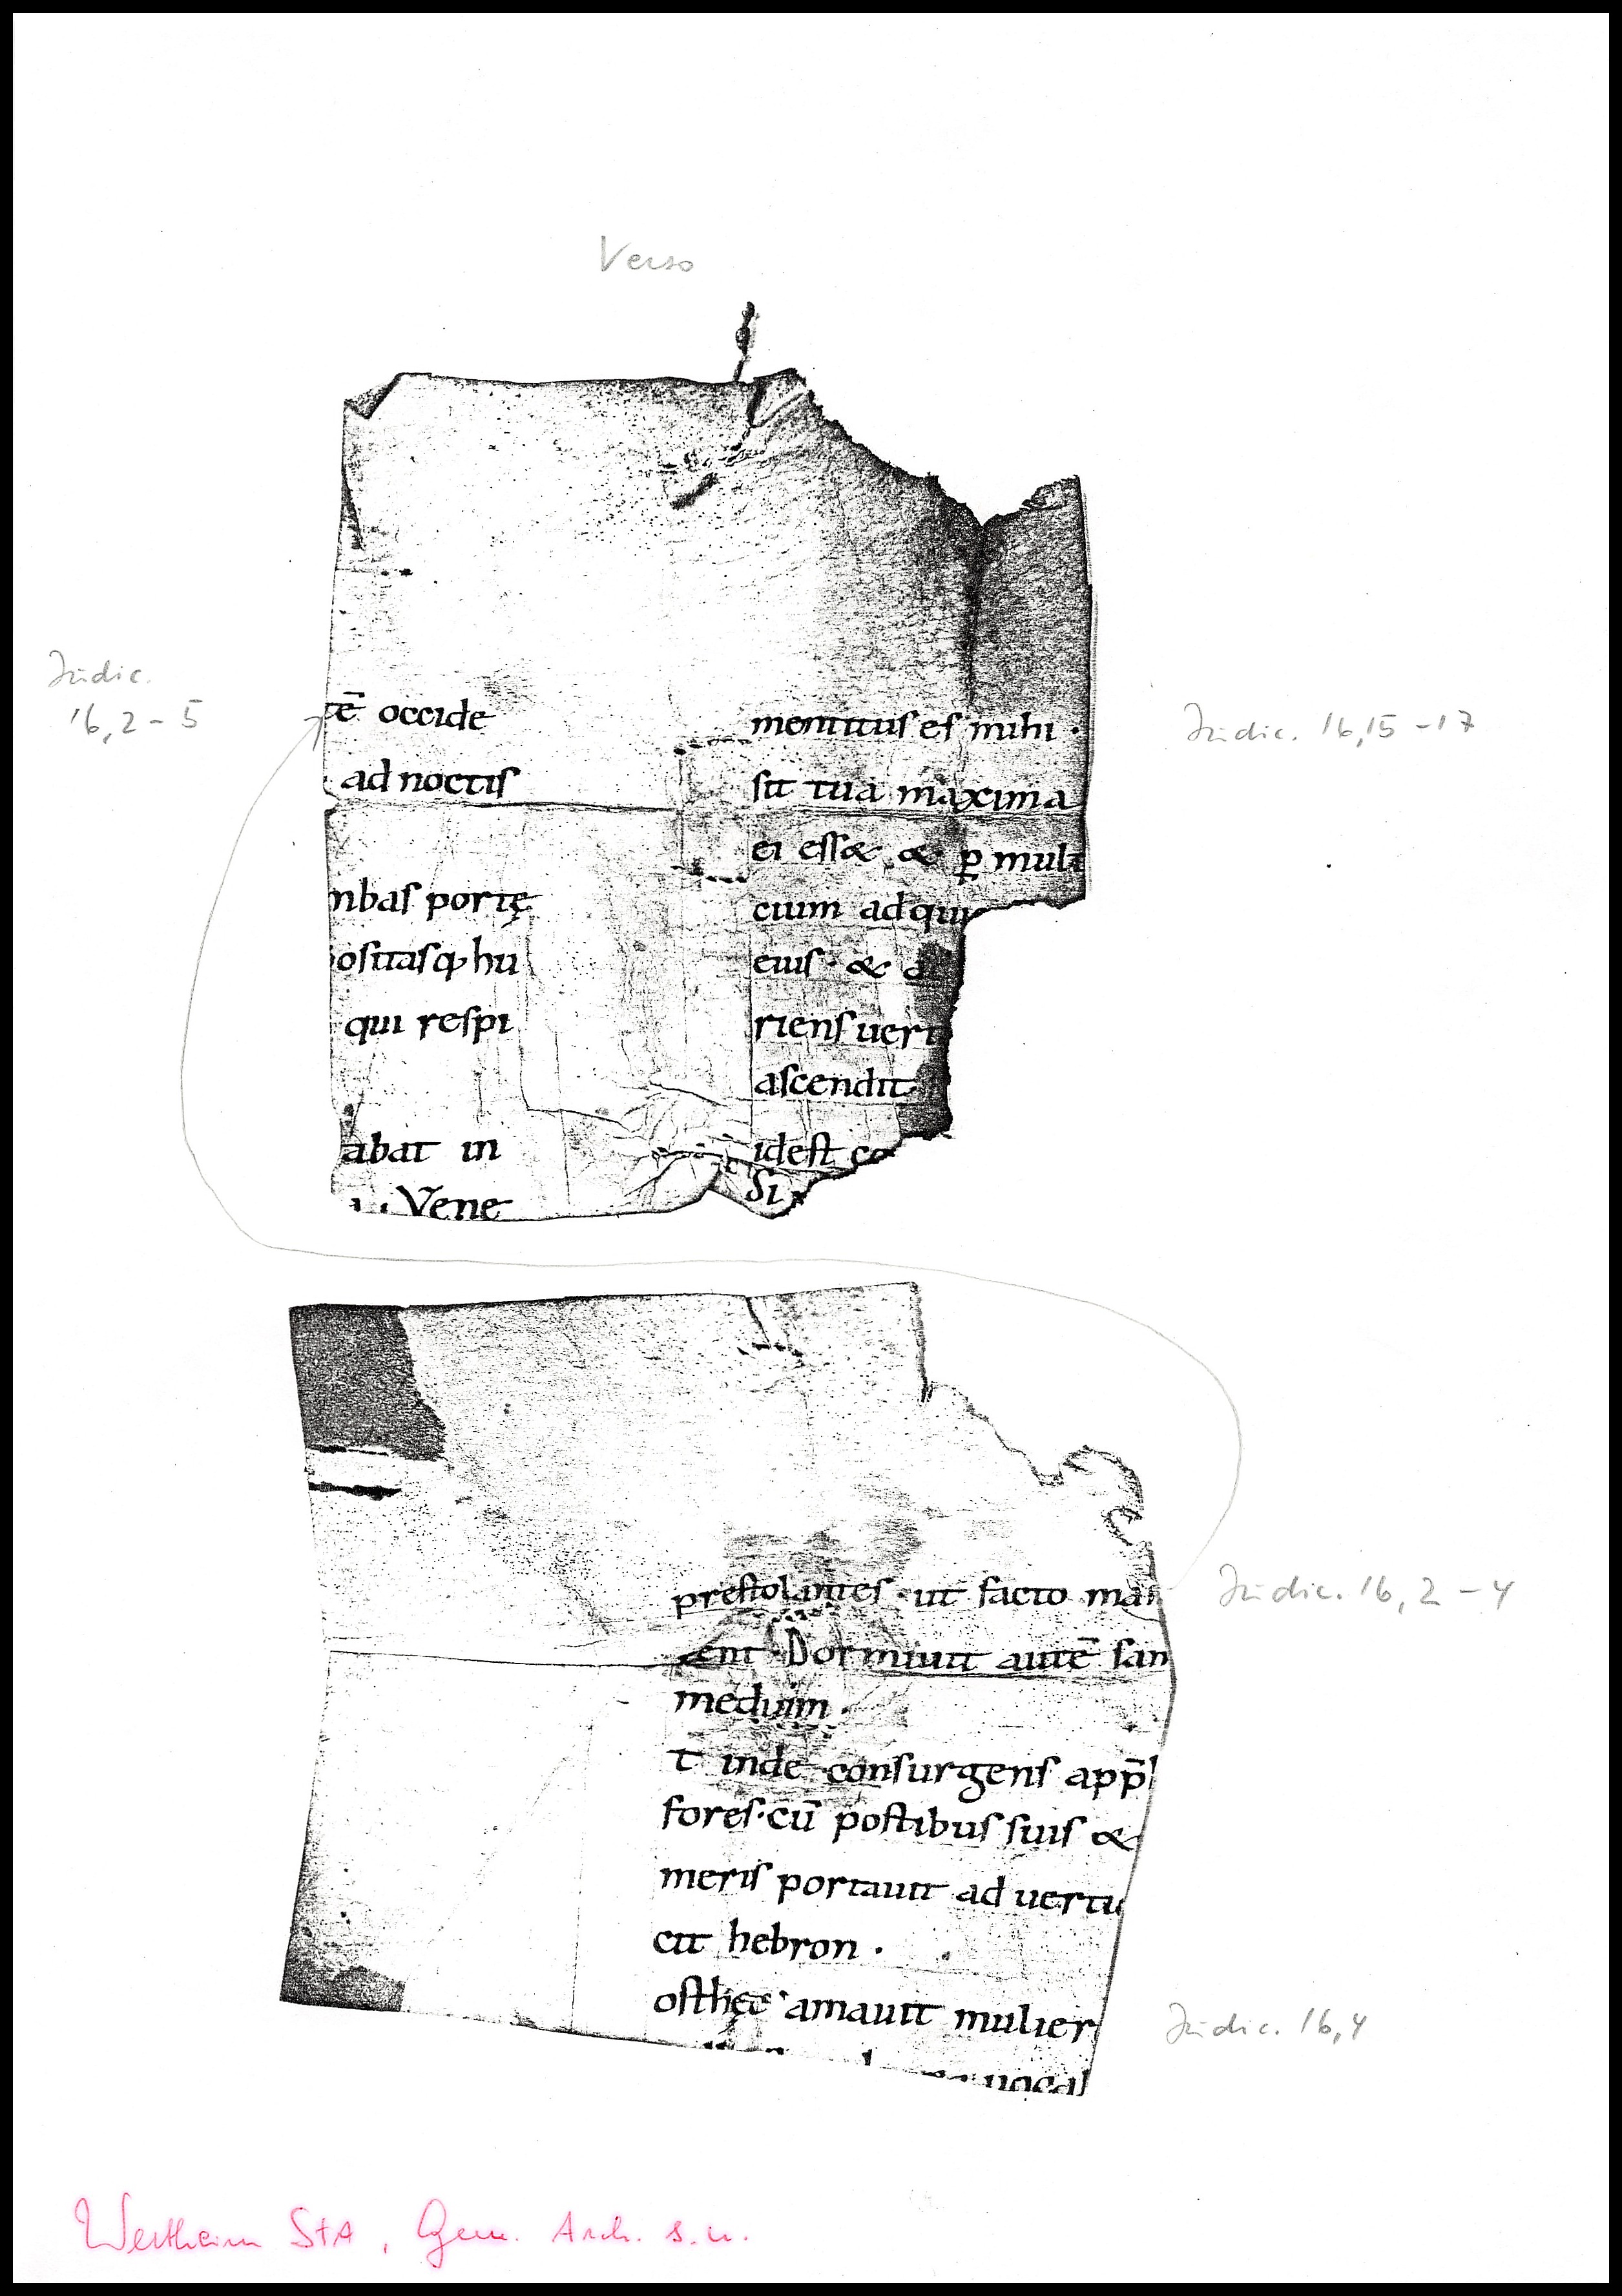 Verso
Judic.
16,2-5
tē occide
ad noctiſ
nbaſ portę
oſitaſq; hu
qui reſpi
abat in
Vene
mentituſ eſ mihi ·
ſit tua maxima
ei eſſ& & ꝑ mult
cium adqui
eiuſ · & a
rienſ ueri
aſcendit
ideſt co
Si
Judic. 16,15-17
preſtolanteſ · ut facto ma
ent · Dormiuit autē ſan
medium ·
t inde conſurgenſ app̄
foreſ · cū poſtibuſ ſuiſ &
meriſ portauit ad uerti
cit hebron ·
oſthęc amauit mulier
uocal
Judic. 16,2-4
Judic. 16,4
Wertheim StA, Gem. Arch. s.n.